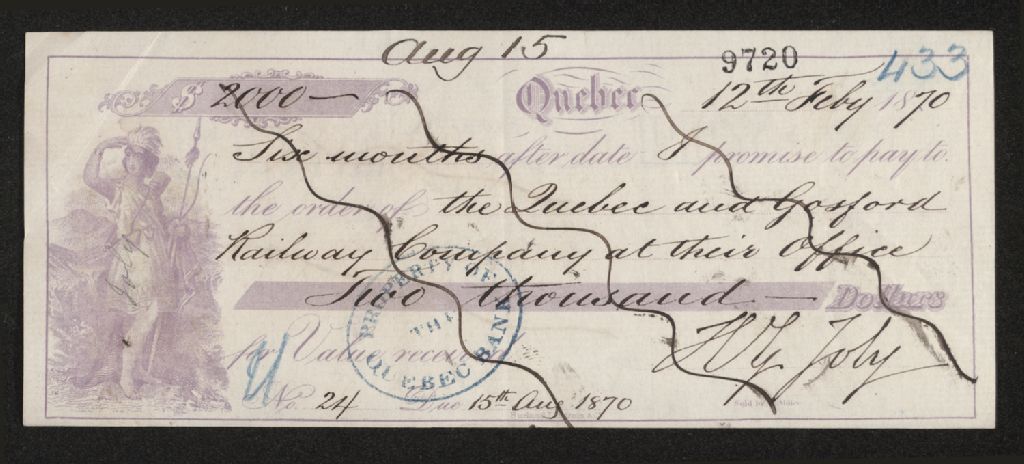 Aug 15
9720
433
$ 2000 — Quebec 12th Feby 1870
Six months after date I promise to pay to
the order of the Quebec and Gosford
Railway Company at their Office
Two thousand — Dollars
for Value received
HG Joly
No. 24 Due 15th Aug 1870
PROPERTY OF
THE
QUEBEC BANK
Joly